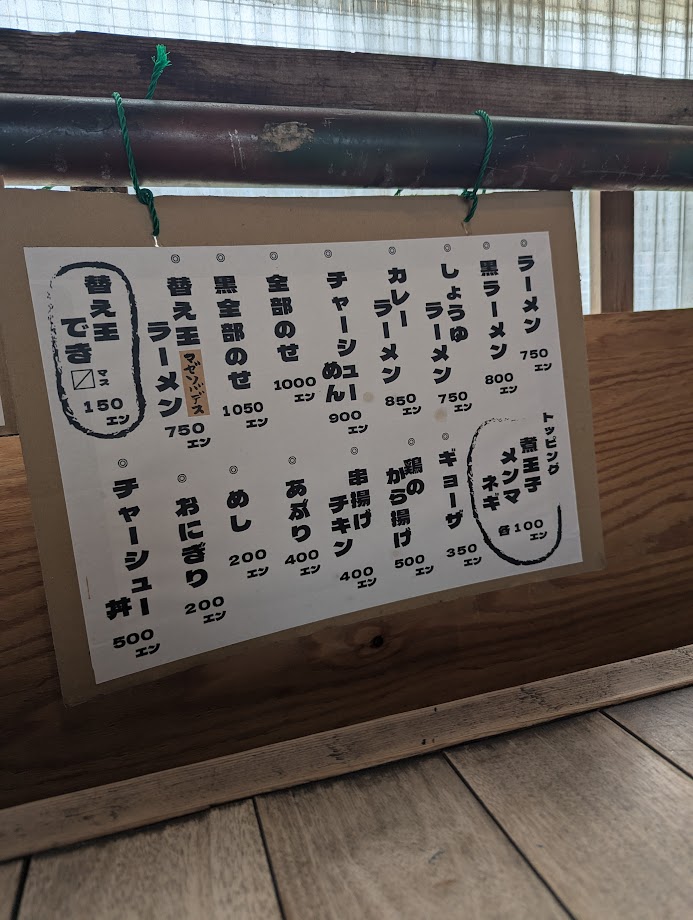 ◎ラーメン
750
エン
◎黒ラーメン
800
エン
◎しょうゆ
ラーメン
750
エン
◎カレー
ラーメン
850
エン
◎チャーシュー
めん
900
エン
◎全部のせ
1000
エン
◎黒全部のせ
1050
エン
◎替え玉
ラーメン
マゼソバデス
750
エン
替え玉
でき〼
マス
150
エン
トッピング
煮玉子
メンマ
ネギ
各100
エン
◎ギョーザ
350
エン
◎鶏の
から揚げ
500
エン
◎串揚げ
チキン
400
エン
◎あぶり
400
エン
◎めし
200
エン
◎おにぎり
200
エン
◎チャーシュー
丼
500
エン